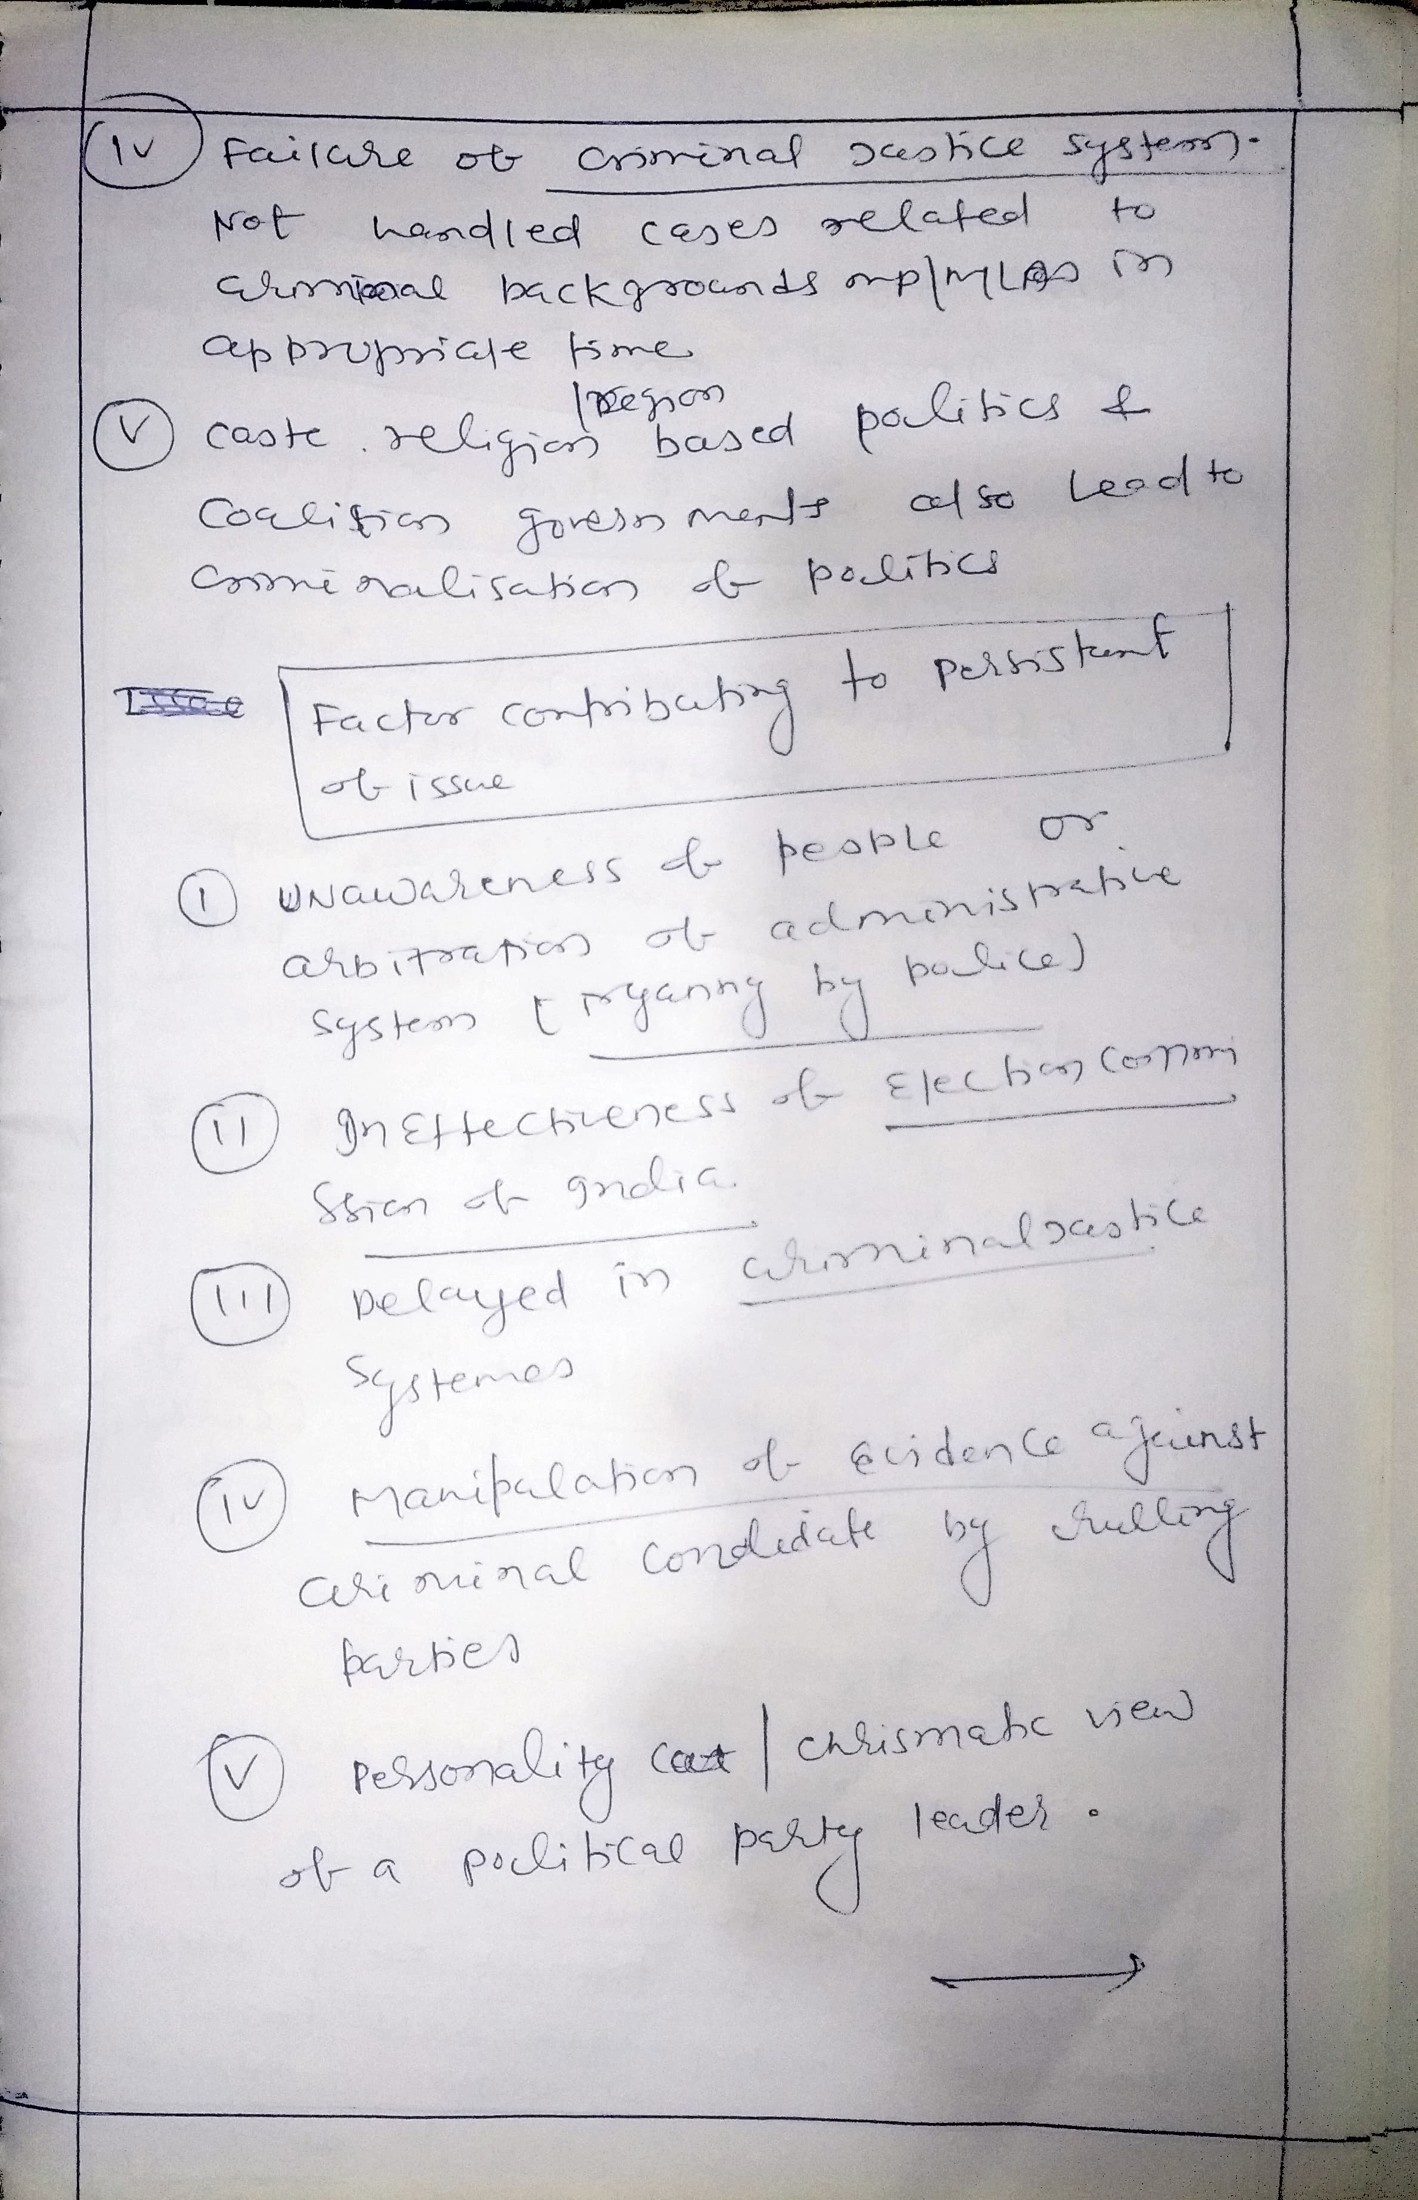 (iv) Failure of criminal Justice system.
Not handled cases related to
criminal backgrounds mp/MLAs in
appropriate time
/region
(v) caste, religion based politics &
Coalition governments also lead to
criminalisation of politics
Issue
Factor contributing to persistent
of issue
(i) Unawareness of people or
arbitration of administrative
system ( by police)
(ii) InEffectiveness of Election Commi
ssion of India.
(iii) Delayed in criminal Justice
Systemes
(iv) Manipulation of evidence against
criminal condidate by rulling
parties
(v) Personality / chrismatic view
of a political party leader.